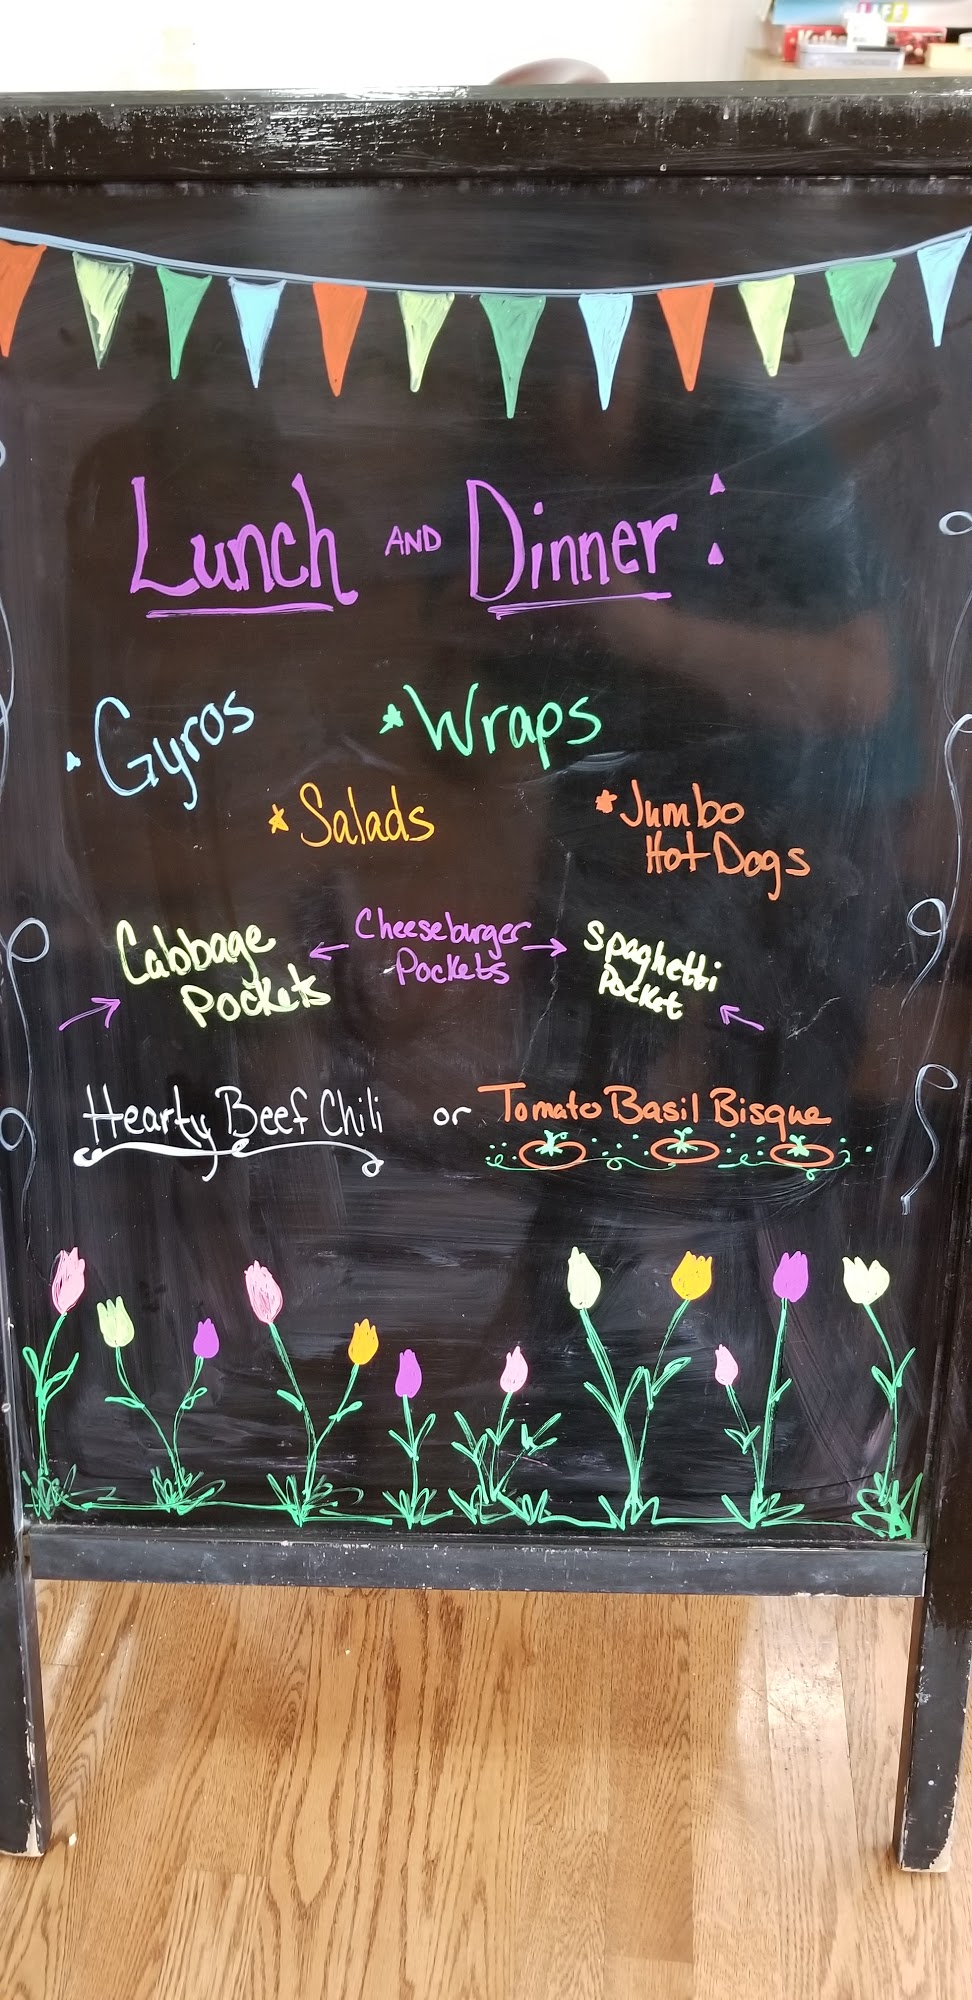 LIFE
Lunch AND Dinner:
Gyros
*Wraps
*Salads
*Jumbo
Hot Dogs
Cabbage
Pockets
Cheeseburger
Pockets
Spaghetti
Pocket
Hearty Beef Chili or Tomato Basil Bisque